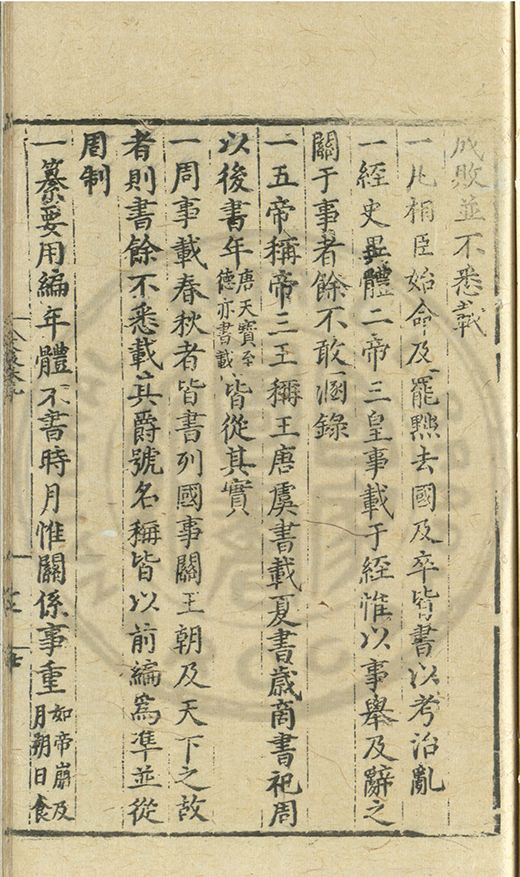 成敗並不悉載
一凡稱臣始命及罷黜去國及卒皆書以考治亂
一經史異體二帝三皇事載于經惟以事舉及辭之
關于事者餘不敢溷錄
一五帝稱帝三王稱王唐虞書載夏書歲商書祀周
以後書年唐天寶至德亦書載皆從其實
一周事載春秋者皆書列國事關王朝及天下之故
者則書餘不悉載其爵號名稱皆以前編爲準並從
周制
一纂要用編年體不書時月惟關係事重如帝崩及月朔日食